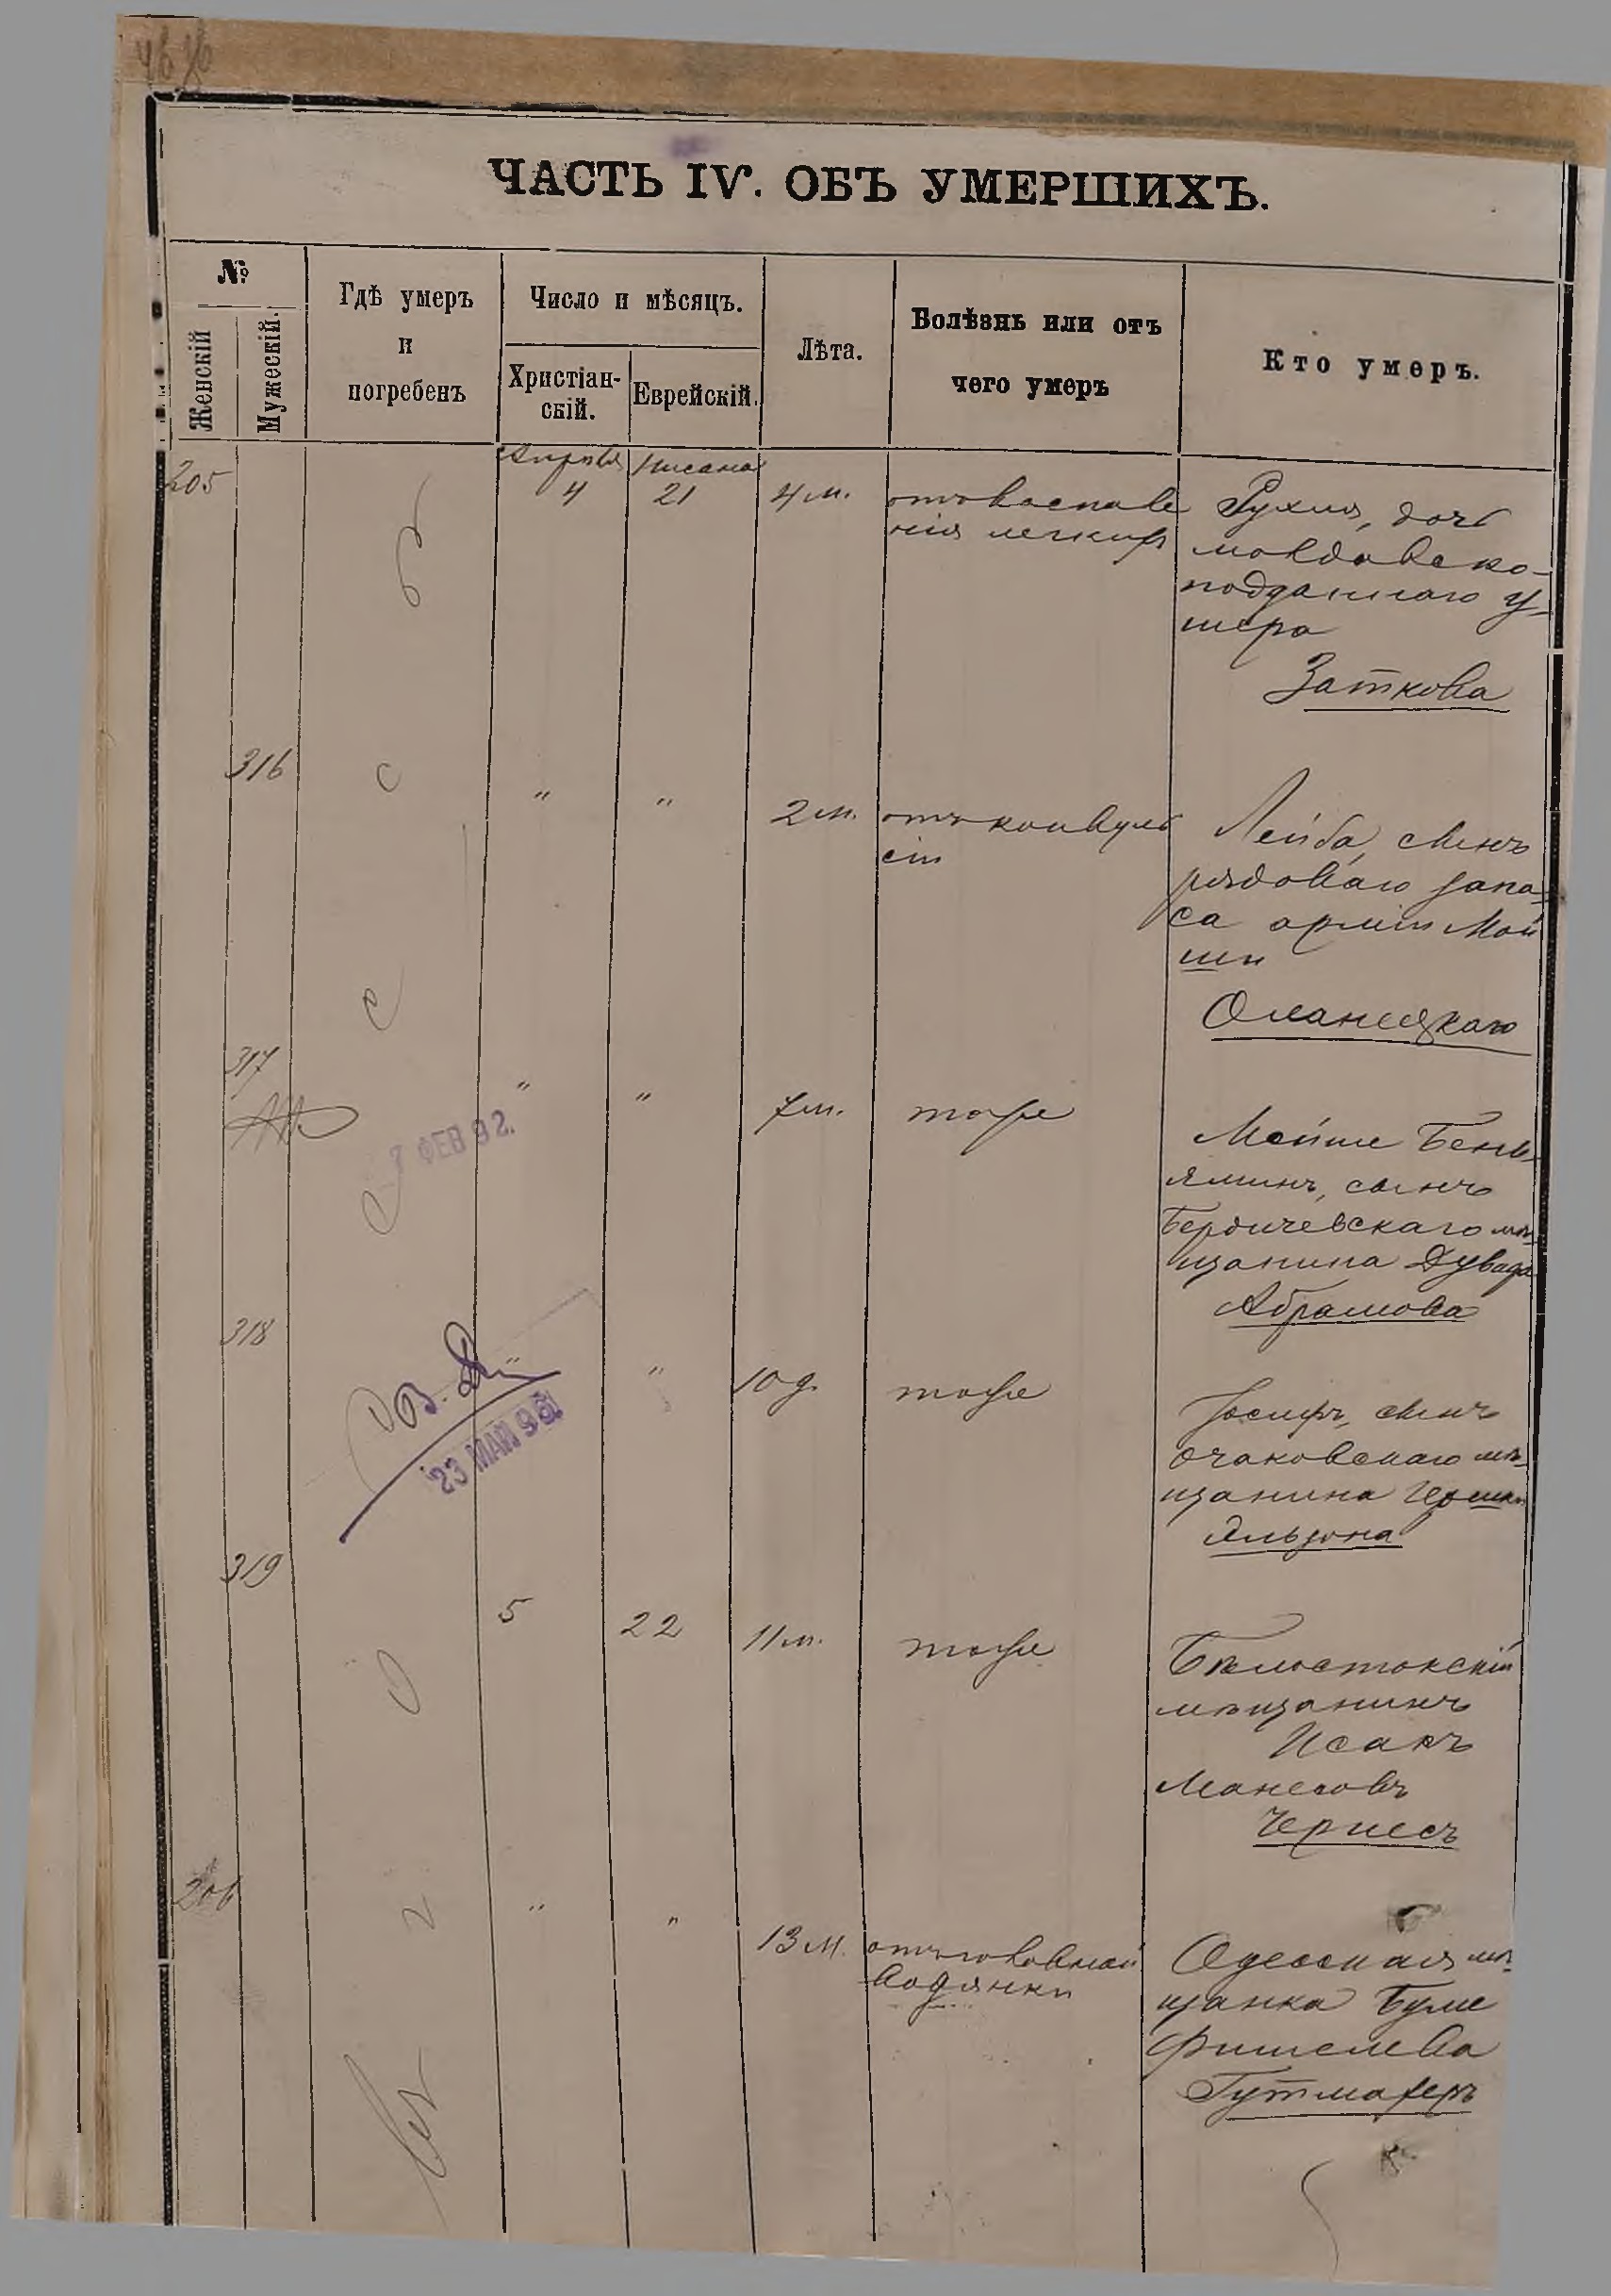 ЧАСТЬ IV. ОБЪ УМЕРШИХЪ.
№
Женскій
Мужескій.
Гдѣ умеръ
и
погребенъ
Число и мѣсяцъ.
Христіан-
скій.
Еврейскій.
Лѣта.
Болѣзнь или отъ
чего умеръ
Кто умеръ.
205
Апрѣля
4
Нисана
21
4 м.
отъ воспале
нія легкихъ
Рухля, дочь
молдавско-
подданнаго У-
шера
Заткова
316
"
"
2 м.
отъ конвуль
сіи
Лейба, сынъ
рядоваго запа-
са арміи Мой
ши
Оланецкаго
317
"
"
7 м.
тоже
Мойше Бень-
яминъ, сынъ
Бердичевскаго мѣ-
щанина Дувида
Абрамова
7 ФЕВ 92.
318
"
"
10 д.
тоже
Іосифъ, сынъ
очаковскаго мѣ-
щанина Гершки
Альзона
23 МАЙ 9
319
5
22
11 м.
тоже
Бѣлостокскій
мѣщанинъ
Исакъ
Манесовъ
Чернесъ
206
"
"
13 м.
отъ головной
водянки
Одесская мѣ-
щанка Буме
Фишелева
Гутмахеръ